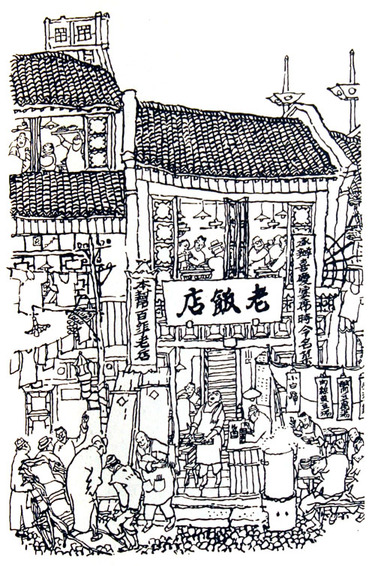 老飯店
承辦喜慶筵席時令名菜
本幫百年老店